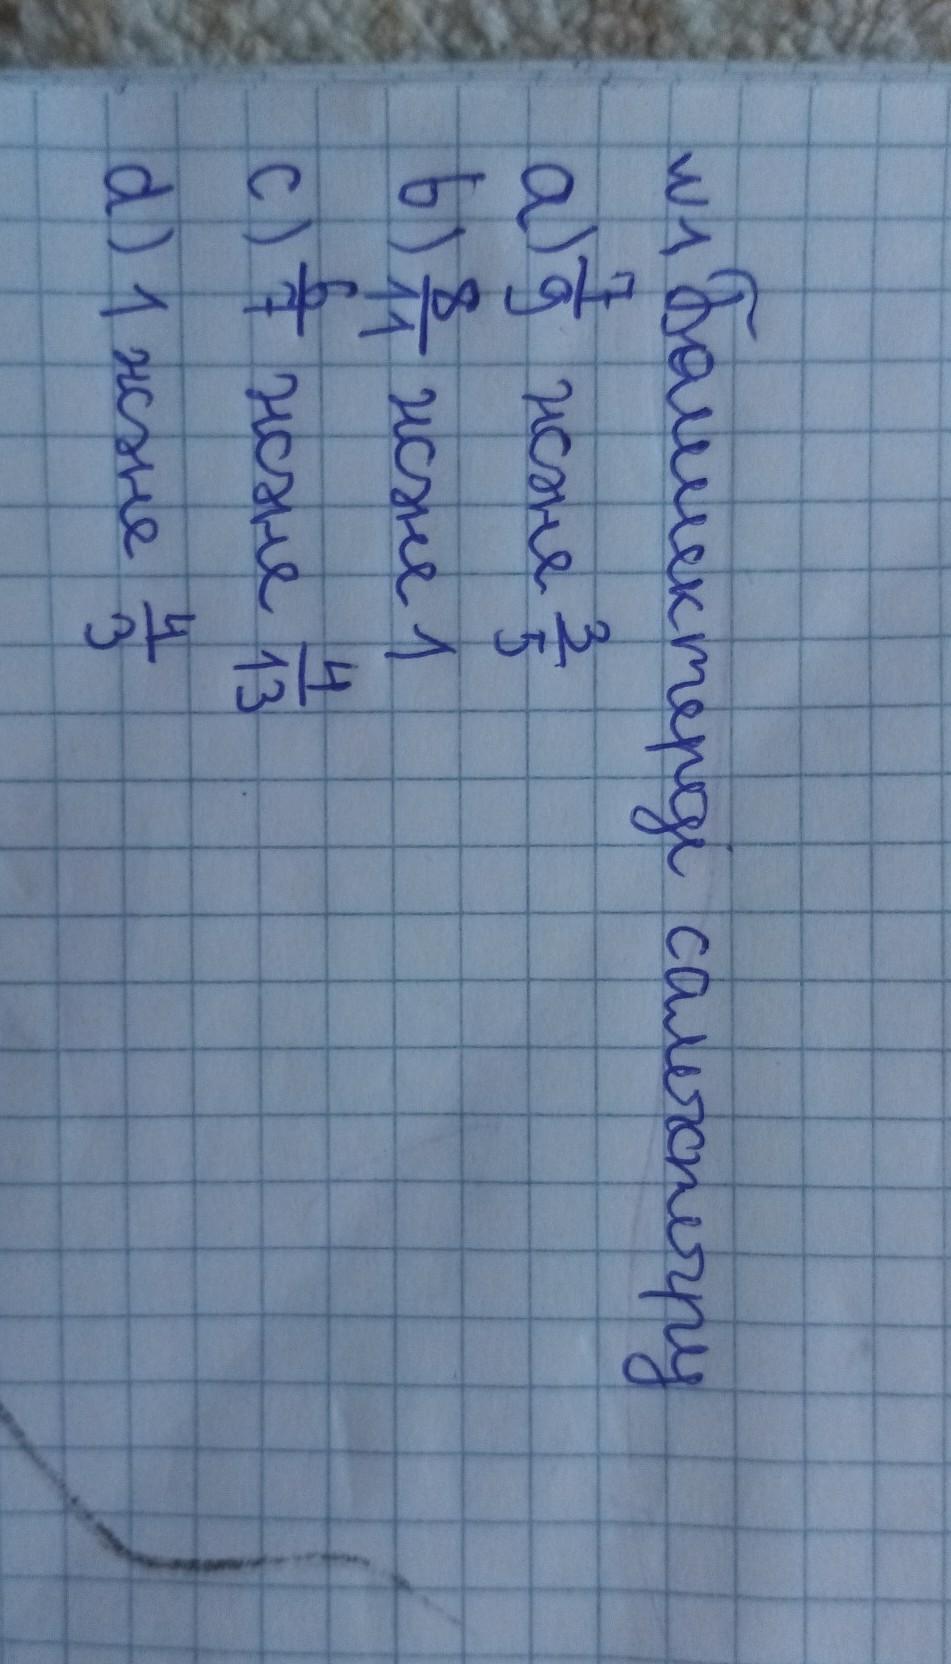 №1 Бөлшектерді салыстыру
a) 7/9 және 3/5
b) 8/11 және 1
c) 6/7 және 4/13
d) 1 және 4/3